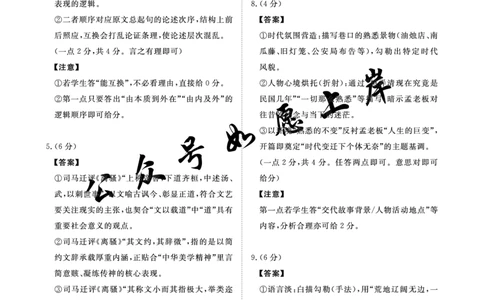 表现的逻辑。
②二者顺序对应原文总起句的论述次序,结构上前
后照应,互换会打乱论证条理,使论述层次混乱。
(一点2分,共4分。言之有理即可)
【注意】
①若学生答“能互换”,不必看理由,直接给0分。
②第一点只要答出“由本质到外在”“由内及外”的
逻辑顺序即可给分。
5.(6分)
【答案】
①司马迁评《离骚》“上称
下道齐桓,中述汤、
武,以刺
文喻古讽今、彰显正道,符合文艺
要关注现实的主张,也契合“文以载道”中“道”具有
重要社会意义的观点。
②司马迁评《离骚》“其文约,其辞微”,指的是以简
约文辞承载厚重内涵,正贴合“中华美学精神”里言
简意赅、凝练传神的核心表现。
③司马迁评《离骚》“其称文小而其指极大,举类迩
8.(4分)
【答案】
①时代氛围营造:描写巷口的熟悉景物(油烛店、南
瓜藤、旧灯笼、公安局布告等),勾勒出特定时代
风貌。
②人物心境烘托(折射):通过
清现在究竟是
民国几年”“一切那
熟悉”等
暗示孟老板对
往昔
念与当下的迷茫。
③以
熟悉的不变”反衬孟老板“人生的巨变”,
开篇即奠定“时代变迁下个体无奈”的主题基调。
(一点2分,共4分。任答两点即可。意思对即可
给分)
【注意】
第一点若学生答“交代故事背景/人物活动地点”等
内容,分析合理亦可给2分。
9.(6分)
【答案】
①语言淡:白描勾勒(手法),用“荒地辽阔无边,一
公众号如愿上岸